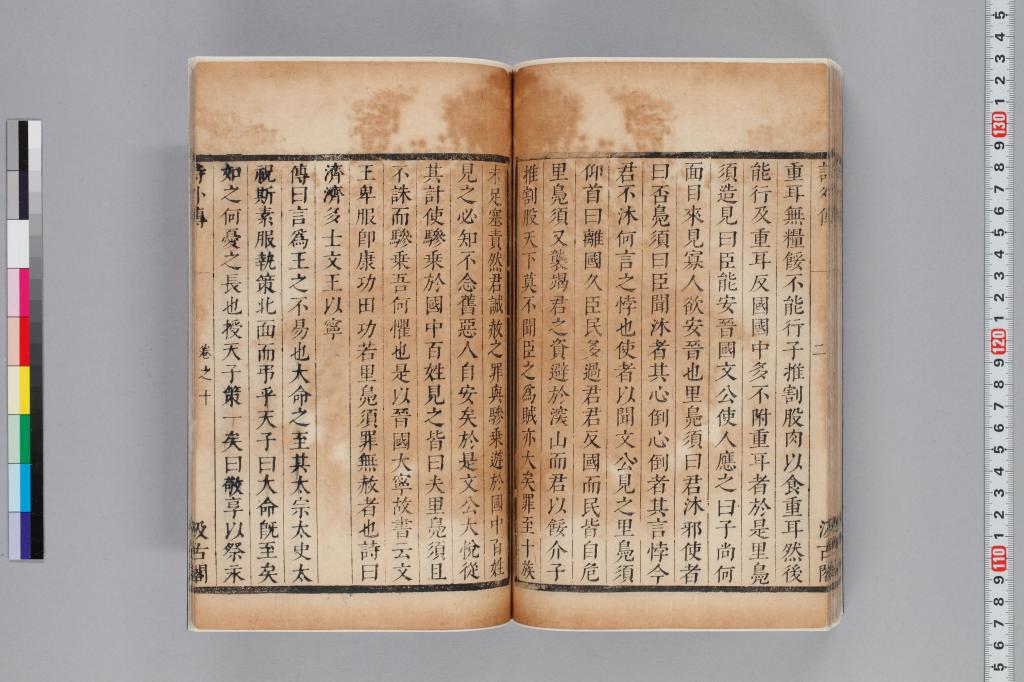 重耳無糧餒不能行子推割股肉以食重耳然後
能行及重耳反國國中多不附重耳者於是里鳧
須造見曰臣能安晉國文公使人應之曰子尚何
面目來見寡人欲安晉也里鳧須曰君沐邪使者
曰否鳧須曰臣聞沐者其心倒心倒者其言悖今
君不沐何言之悖也使者以聞文公見之里鳧須
仰首曰離國久臣民多過君君反國而民皆自危
里鳧須又襲竭君之資避於深山而君以餒介子
推割股天下莫不聞臣之爲賊亦大矣罪至十族
未足塞責然君誠赦之罪與驂乘遊於國中百姓
見之必知不念舊惡人自安矣於是文公大悅從
其計使驂乘於國中百姓見之皆曰夫里鳧須且
不誅而驂乘吾何懼也是以晉國大寧故書云文
王卑服卽康功田功若里鳧須罪無赦者也詩曰
濟濟多士文王以寧
傳曰言爲王之不易也大命之至其太宗太史太
祝斯素服執策北面而弔乎天子曰大命旣至矣
如之何憂之長也授天子策一矣曰敬享以祭永
詩外傳
卷之十
汲古閣